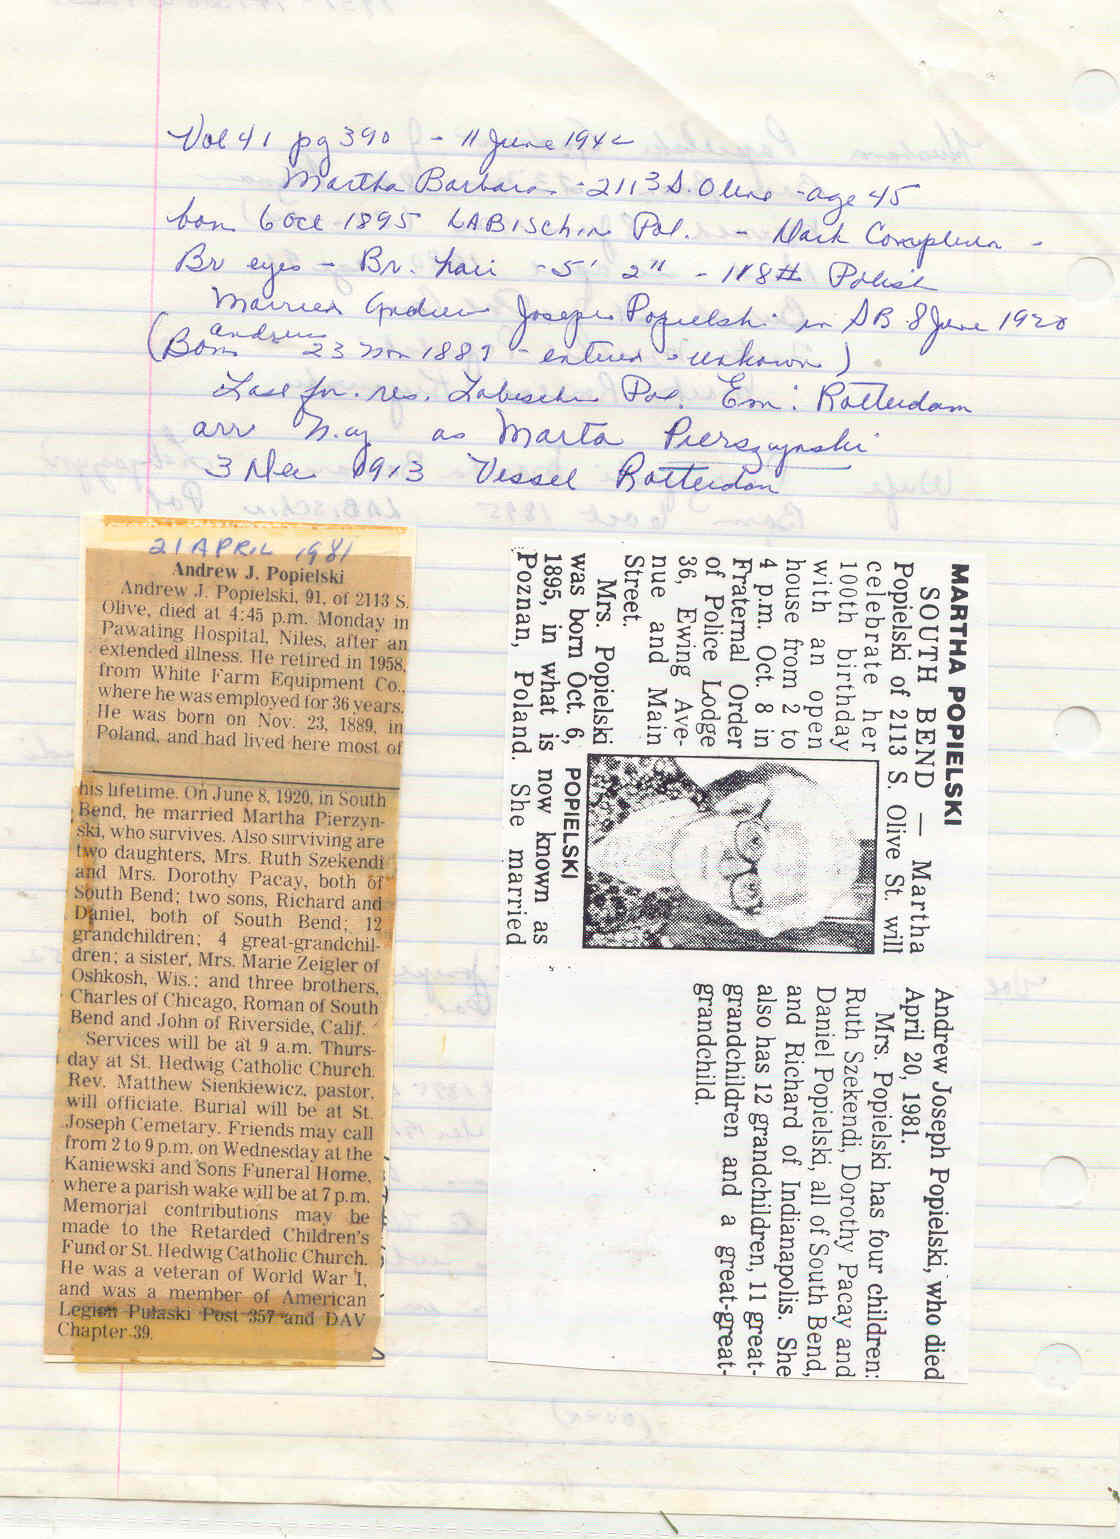 Vol 41 pg 390 - 11 June 1942
Martha Barbara - 2113 S. Olive - age 45
born 6 Oct 1895 LABISchin Pol. - Dark Complexion -
Br eyes - Br. hair - 5' 2" - 118# Polish
Married Andrew Joseph Popielski in SB 8 June 1920
(Born Andrew 23 Nov 1889 - entered - unknown)
Last for. res. Labischin Pol. Em: Rotterdam
arr N.Y. as Marta Pierszynski
3 Dec 1913 Vessel Rotterdam
21 APRIL 1981
Andrew J. Popielski
Andrew J. Popielski, 91, of 2113 S.
Olive, died at 4:45 p.m. Monday in
Pawating Hospital, Niles, after an
extended illness. He retired in 1958,
from White Farm Equipment Co.,
where he was employed for 36 years.
He was born on Nov. 23, 1889, in
Poland, and had lived here most of
his lifetime. On June 8, 1920, in South
Bend, he married Martha Pierzyn-
ski, who survives. Also surviving are
two daughters, Mrs. Ruth Szekendi
and Mrs. Dorothy Pacay, both of
South Bend; two sons, Richard and
Daniel, both of South Bend; 12
grandchildren; 4 great-grandchil-
dren; a sister, Mrs. Marie Zeigler of
Oshkosh, Wis.; and three brothers,
Charles of Chicago, Roman of South
Bend and John of Riverside, Calif.
Services will be at 9 a.m. Thurs-
day at St. Hedwig Catholic Church.
Rev. Matthew Sienkiewicz, pastor,
will officiate. Burial will be at St.
Joseph Cemetary. Friends may call
from 2 to 9 p.m. on Wednesday at the
Kaniewski and Sons Funeral Home,
where a parish wake will be at 7 p.m.
Memorial contributions may be
made to the Retarded Children's
Fund or St. Hedwig Catholic Church.
He was a veteran of World War I,
and was a member of American
Legion Pulaski Post 357 and DAV
Chapter 39.
MARTHA POPIELSKI
SOUTH BEND — Martha
Popielski of 2113 S. Olive St. will
celebrate her
100th birthday
with an open
house from 2 to
4 p.m. Oct. 8 in
Fraternal Order
of Police Lodge
36, Ewing Ave-
nue and Main
Street.
Mrs. Popielski
was born Oct. 6,
1895, in what is now known as
Poznan, Poland. She married
POPIELSKI
Andrew Joseph Popielski, who died
April 20, 1981.
Mrs. Popielski has four children:
Ruth Szekendi, Dorothy Pacay and
Daniel Popielski, all of South Bend,
and Richard of Indianapolis. She
also has 12 grandchildren, 11 great-
grandchildren and a great-great-
grandchild.